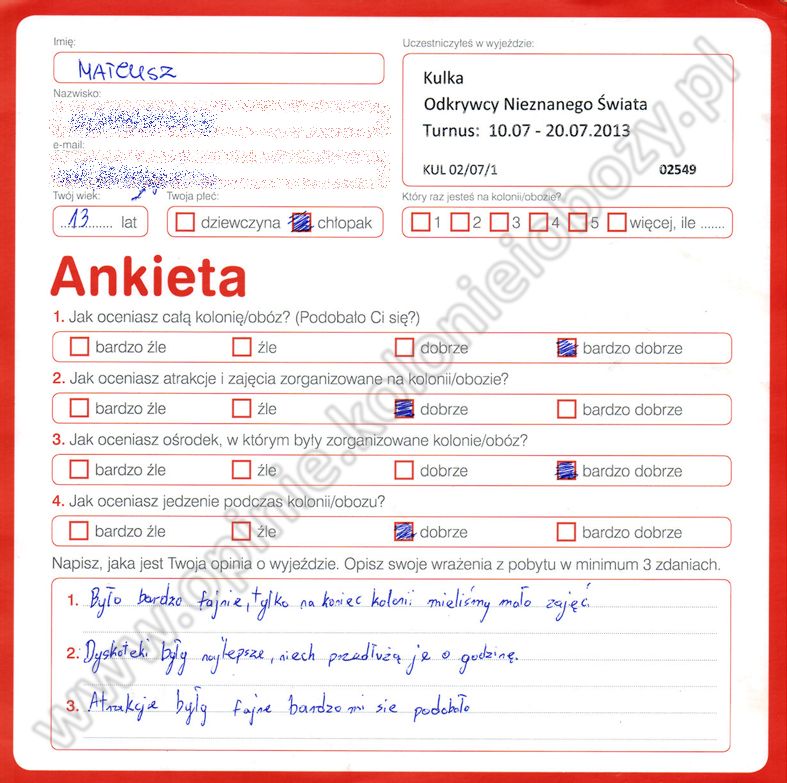 Imię:
MATEUSZ
Nazwisko:
e-mail:
Twój wiek:
13 lat
Twoja płeć:
dziewczyna chłopak
Uczestniczyłeś w wyjeździe:
Kulka
Odkrywcy Nieznanego Świata
Turnus: 10.07 - 20.07.2013
KUL 02/07/1 02549
Który raz jesteś na kolonii/obozie?
1 2 3 4 5 więcej, ile .......
Ankieta
1. Jak oceniasz całą kolonię/obóz? (Podobało Ci się?)
bardzo źle źle dobrze bardzo dobrze
2. Jak oceniasz atrakcje i zajęcia zorganizowane na kolonii/obozie?
bardzo źle źle dobrze bardzo dobrze
3. Jak oceniasz ośrodek, w którym były zorganizowane kolonie/obóz?
bardzo źle źle dobrze bardzo dobrze
4. Jak oceniasz jedzenie podczas kolonii/obozu?
bardzo źle źle dobrze bardzo dobrze
Napisz, jaka jest Twoja opinia o wyjeździe. Opisz swoje wrażenia z pobytu w minimum 3 zdaniach.
1. Było bardzo fajnie, tylko na koniec kolonii mieliśmy mało zajęć
2. Dyskoteki były najlepsze, niech przedłużą je o godzinę.
3. Atrakcje były fajne bardzo mi sie podobało
www.opinie.kolonieiobozy.pl